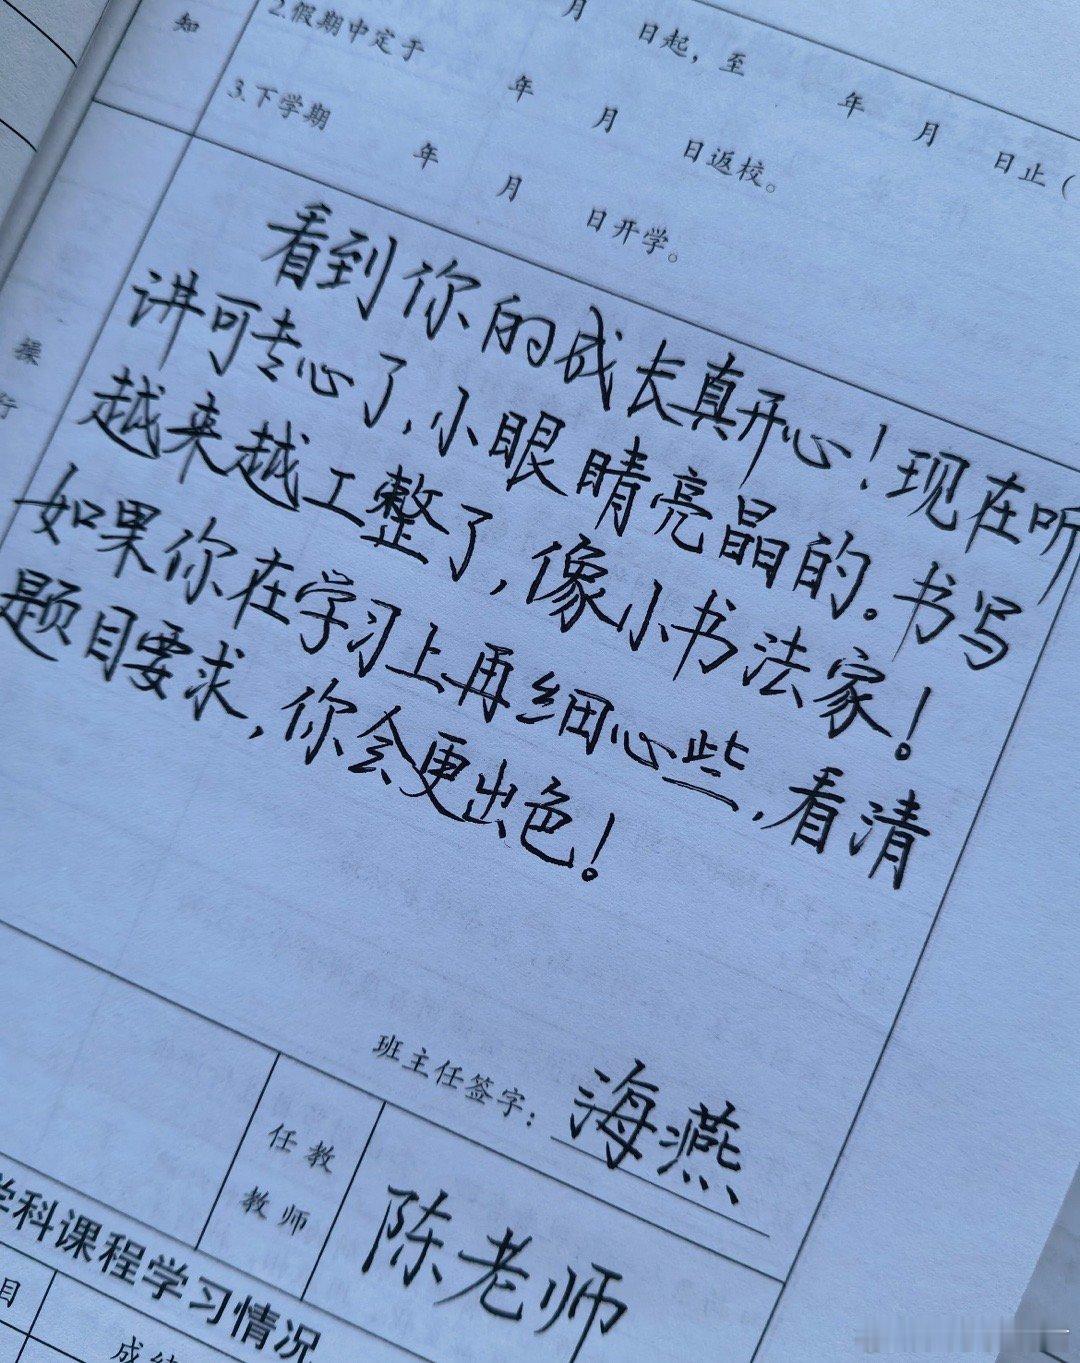 知
月 日起，至 年 月 日止（
2.假期中定于 年 月 日返校。
3.下学期 年 月 日开学。
操
行
看到你的成长真开心！现在听
讲可专心了，小眼睛亮晶的。书写
越来越工整了，像小书法家！
如果你在学习上再细心些，看清
题目要求，你会更出色！
班主任签字：海燕
任教
教师
陈老师
学科课程学习情况
目
成绩